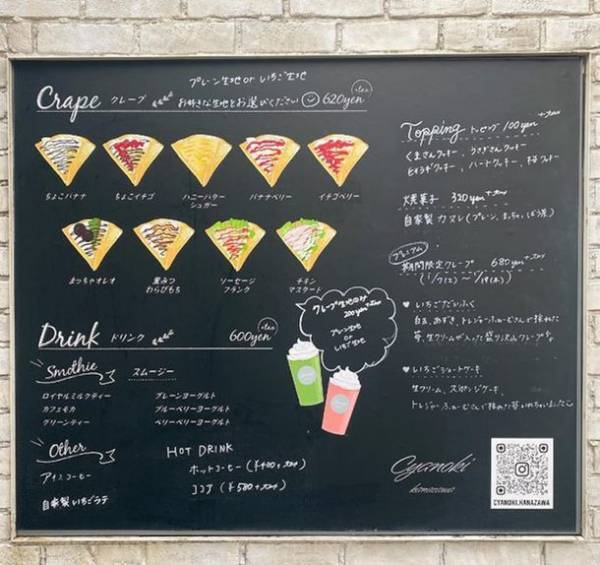 プレーン生地 or いちご生地
Crape クレープ お好きな生地をお選びください 620yen +tax
ちょこバナナ
ちょこイチゴ
ハニーバター
シュガー
バナナベリー
イチゴベリー
まっちゃオレオ
黒みつ
わらびもち
ソーセージ
フランク
チキン
マスタード
クレープ生地のみ
200yen +tax
プレーン生地
or
いちご生地
Drink ドリンク 600yen +tax
Smothie スムージー
ロイヤルミルクティー
カフェモカ
グリーンティー
プレーンヨーグルト
ブルーベリーヨーグルト
ベリーベリーヨーグルト
Other
アイスコーヒー
自家製いちごラテ
HOT DRINK
ホットコーヒー (¥400+tax)
ココア (¥580+tax)
Topping トッピング 100yen +tax
くまさんクッキー、うさぎさんクッキー
ハートクッキー、
焼菓子 320yen +tax
自家製カヌレ(プレーン、まっちゃ、ほうじ茶)
プレミアム
期間限定クレープ 680yen +tax
♥ いちごだいふく
白玉、あずき、
苺、生クリームが入った
♥ いちごショートケーキ
生クリーム、スポンジケーキ、
Cyanoki
CYANOKI.KANAZAWA